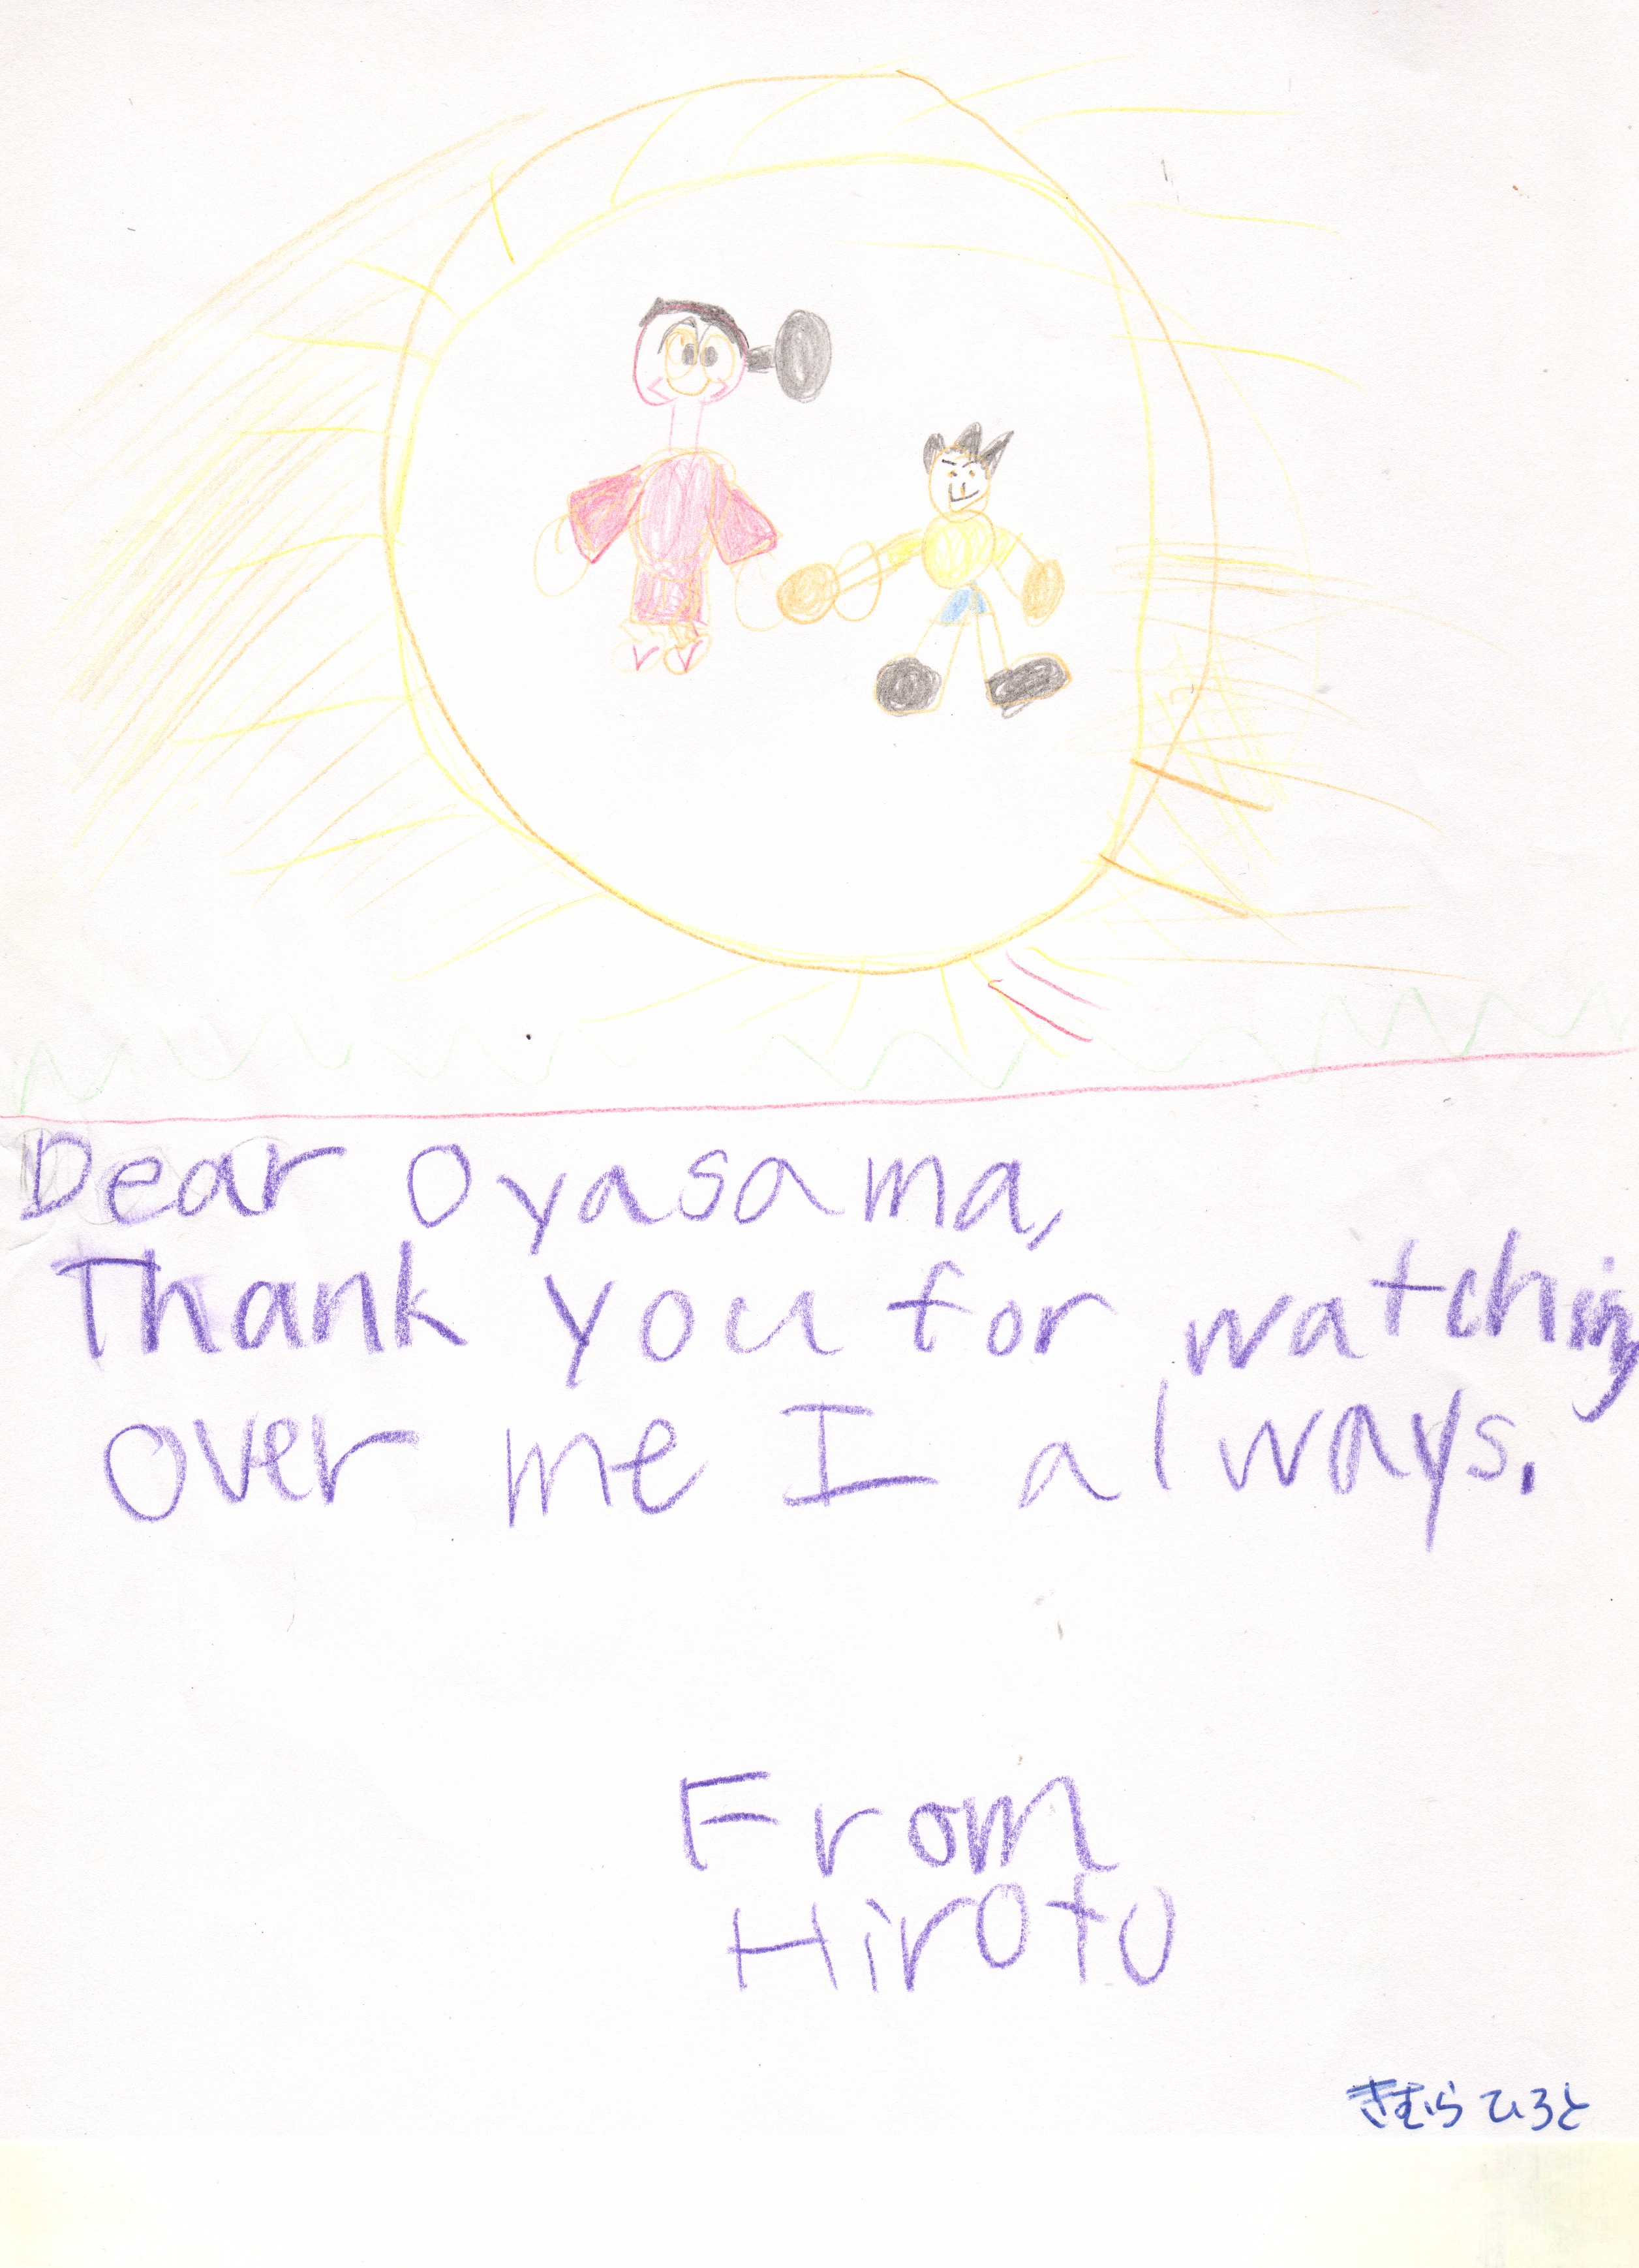 Dear Oyasama,
Thank you for watching
over me I always.
From
Hiroto
きむら ひろと